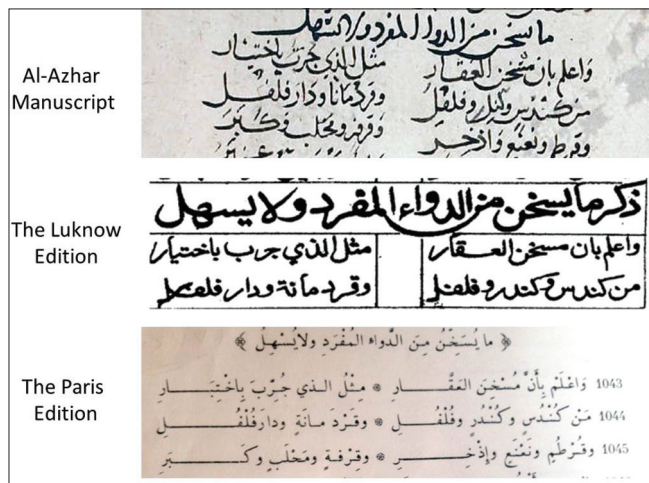 Al-Azhar
Manuscript
ما يسخن من الدواء المفرد ولا يسهل
وَاعلم بان مسخن العقار مثل الذي جرب باختيار
من كندس وكندر وفلفل وقردمانا ودار فلفل
وقرطم ونعنع واذخر وقرفه ومحلب وكبر
The Luknow
Edition
ذكر ما يسخن من الدواء المفرد ولا يسهل
واعلم بان مسخن العقار مثل الذي جرب باختيار
من كندس وكندر وفلفل وقرد مانة ودار فلفل
The Paris
Edition
﴿ ما يُسَخِّنُ مِنَ الدَّواء المُفْرَدِ ولا يُسْهِلُ ﴾
1043 وَاعْلَمْ بِأَنَّ مُسْخِنَ العَقَّـــارِ * مِثْلُ الـذي جُرِّبَ بِاخْتِبَـــارِ
1044 مَن كُنْدُسٍ وكُنْدُرٍ وفُلْفُلِ * وقَرْدَ مـانَةٍ ودارَفُلْفُـــلِ
1045 وقُرْطُمٍ ونَعْنَعٍ وإذْخِـــرِ * وقِرْفةٍ ومَحْلَبٍ وكَـــبَرِ